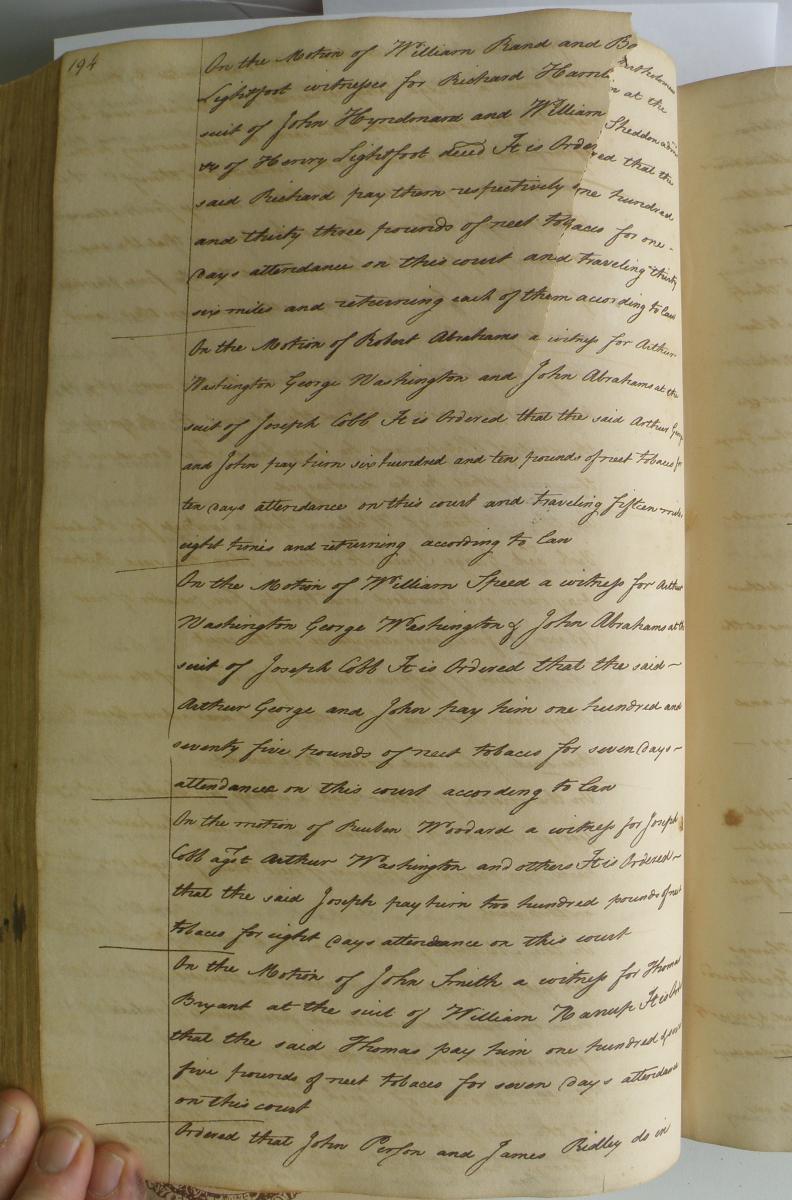 194
On the Motion of William Rand and Bartholomew
Lightfoot witnesses for Richard Hamlin at the
suit of John Hyndman and William Sheddon adm
&c of Henry Lightfoot deced It is Ordered that the
said Richard pay them respectively one hundred
and thirty three pounds of neet tobacco for one
days attendance on this court and traveling thirty
six miles and returning each of them according to Law
On the Motion of Robert Abrahams a witness for Arthur
Washington George Washington and John Abrahams at the
suit of Joseph Cobb It is Ordered that the said Arthur George
and John pay him six hundred and ten pounds of neet tobacco for
ten days attendance on this court and traveling fifteen miles
eight times and returning according to Law
On the Motion of William Speed a witness for Arthur
Washington George Washington & John Abrahams at the
suit of Joseph Cobb It is Ordered that the said
Arthur George and John pay him one hundred and
seventy five pounds of neet tobacco for seven days
attendance on this court according to Law
On the motion of Reuben Woodard a witness for Joseph
Cobb agst Arthur Washington and others It is Ordered
that the said Joseph pay him two hundred pounds of neet
tobacco for eight days attendance on this court
On the Motion of John Smith a witness for Thomas
Bryant at the suit of William It is
that the said Thomas pay him one hundred &
five pounds of neet tobacco for seven days attendance
on this court
Ordered that John Person and James Ridley do in